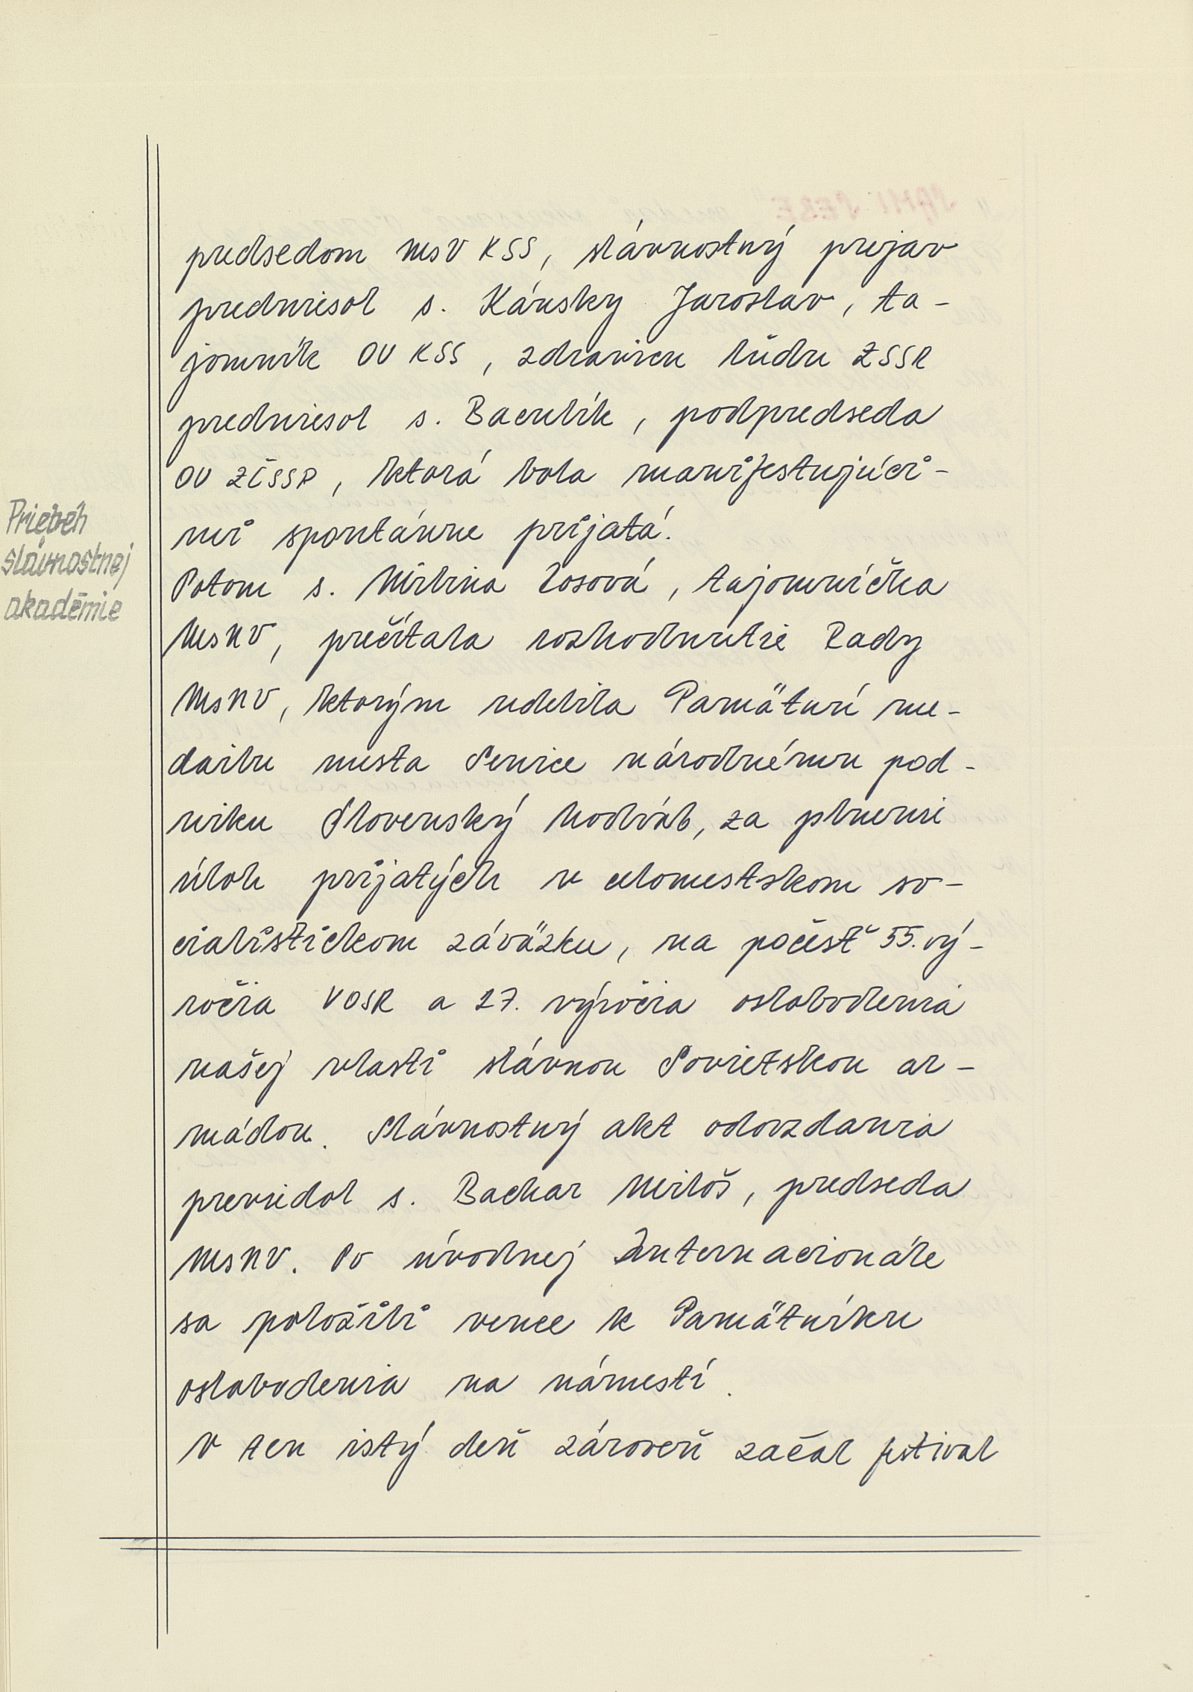 Priebeh
slávnostnej
akadémie
predsedom MsV KSS, slávnostný prejav
predniesol s. Kánsky Jaroslav, ta-
jomník OV KSS, zdravicu ľudu ZSSR
predniesol s. Baculík, podpredseda
OV ZČSSP, ktorá bola manifestujúci-
mi spontánne prijatá.
Potom s. Milina Zosová, tajomníčka
MsNV, prečítala rozhodnutie Rady
MsNV, ktorým udelila Pamätní me-
dailu mesta Senice národnému pod-
niku Slovenský hodváb, za plnenie
úloh prijatých v celomestskom so-
cialistickom záväzku, na počesť 55. vý-
ročia VOSR a 27. výročia oslobodenia
našej vlasti slávnou Sovietskou ar-
mádou. Slávnostný akt odovzdania
previedol s. Bachar Miloš, predseda
MsNV. Po úvodnej Internacionále
sa položili vence k Pamätníku
oslobodenia na námestí.
V ten istý deň zároveň začal festival